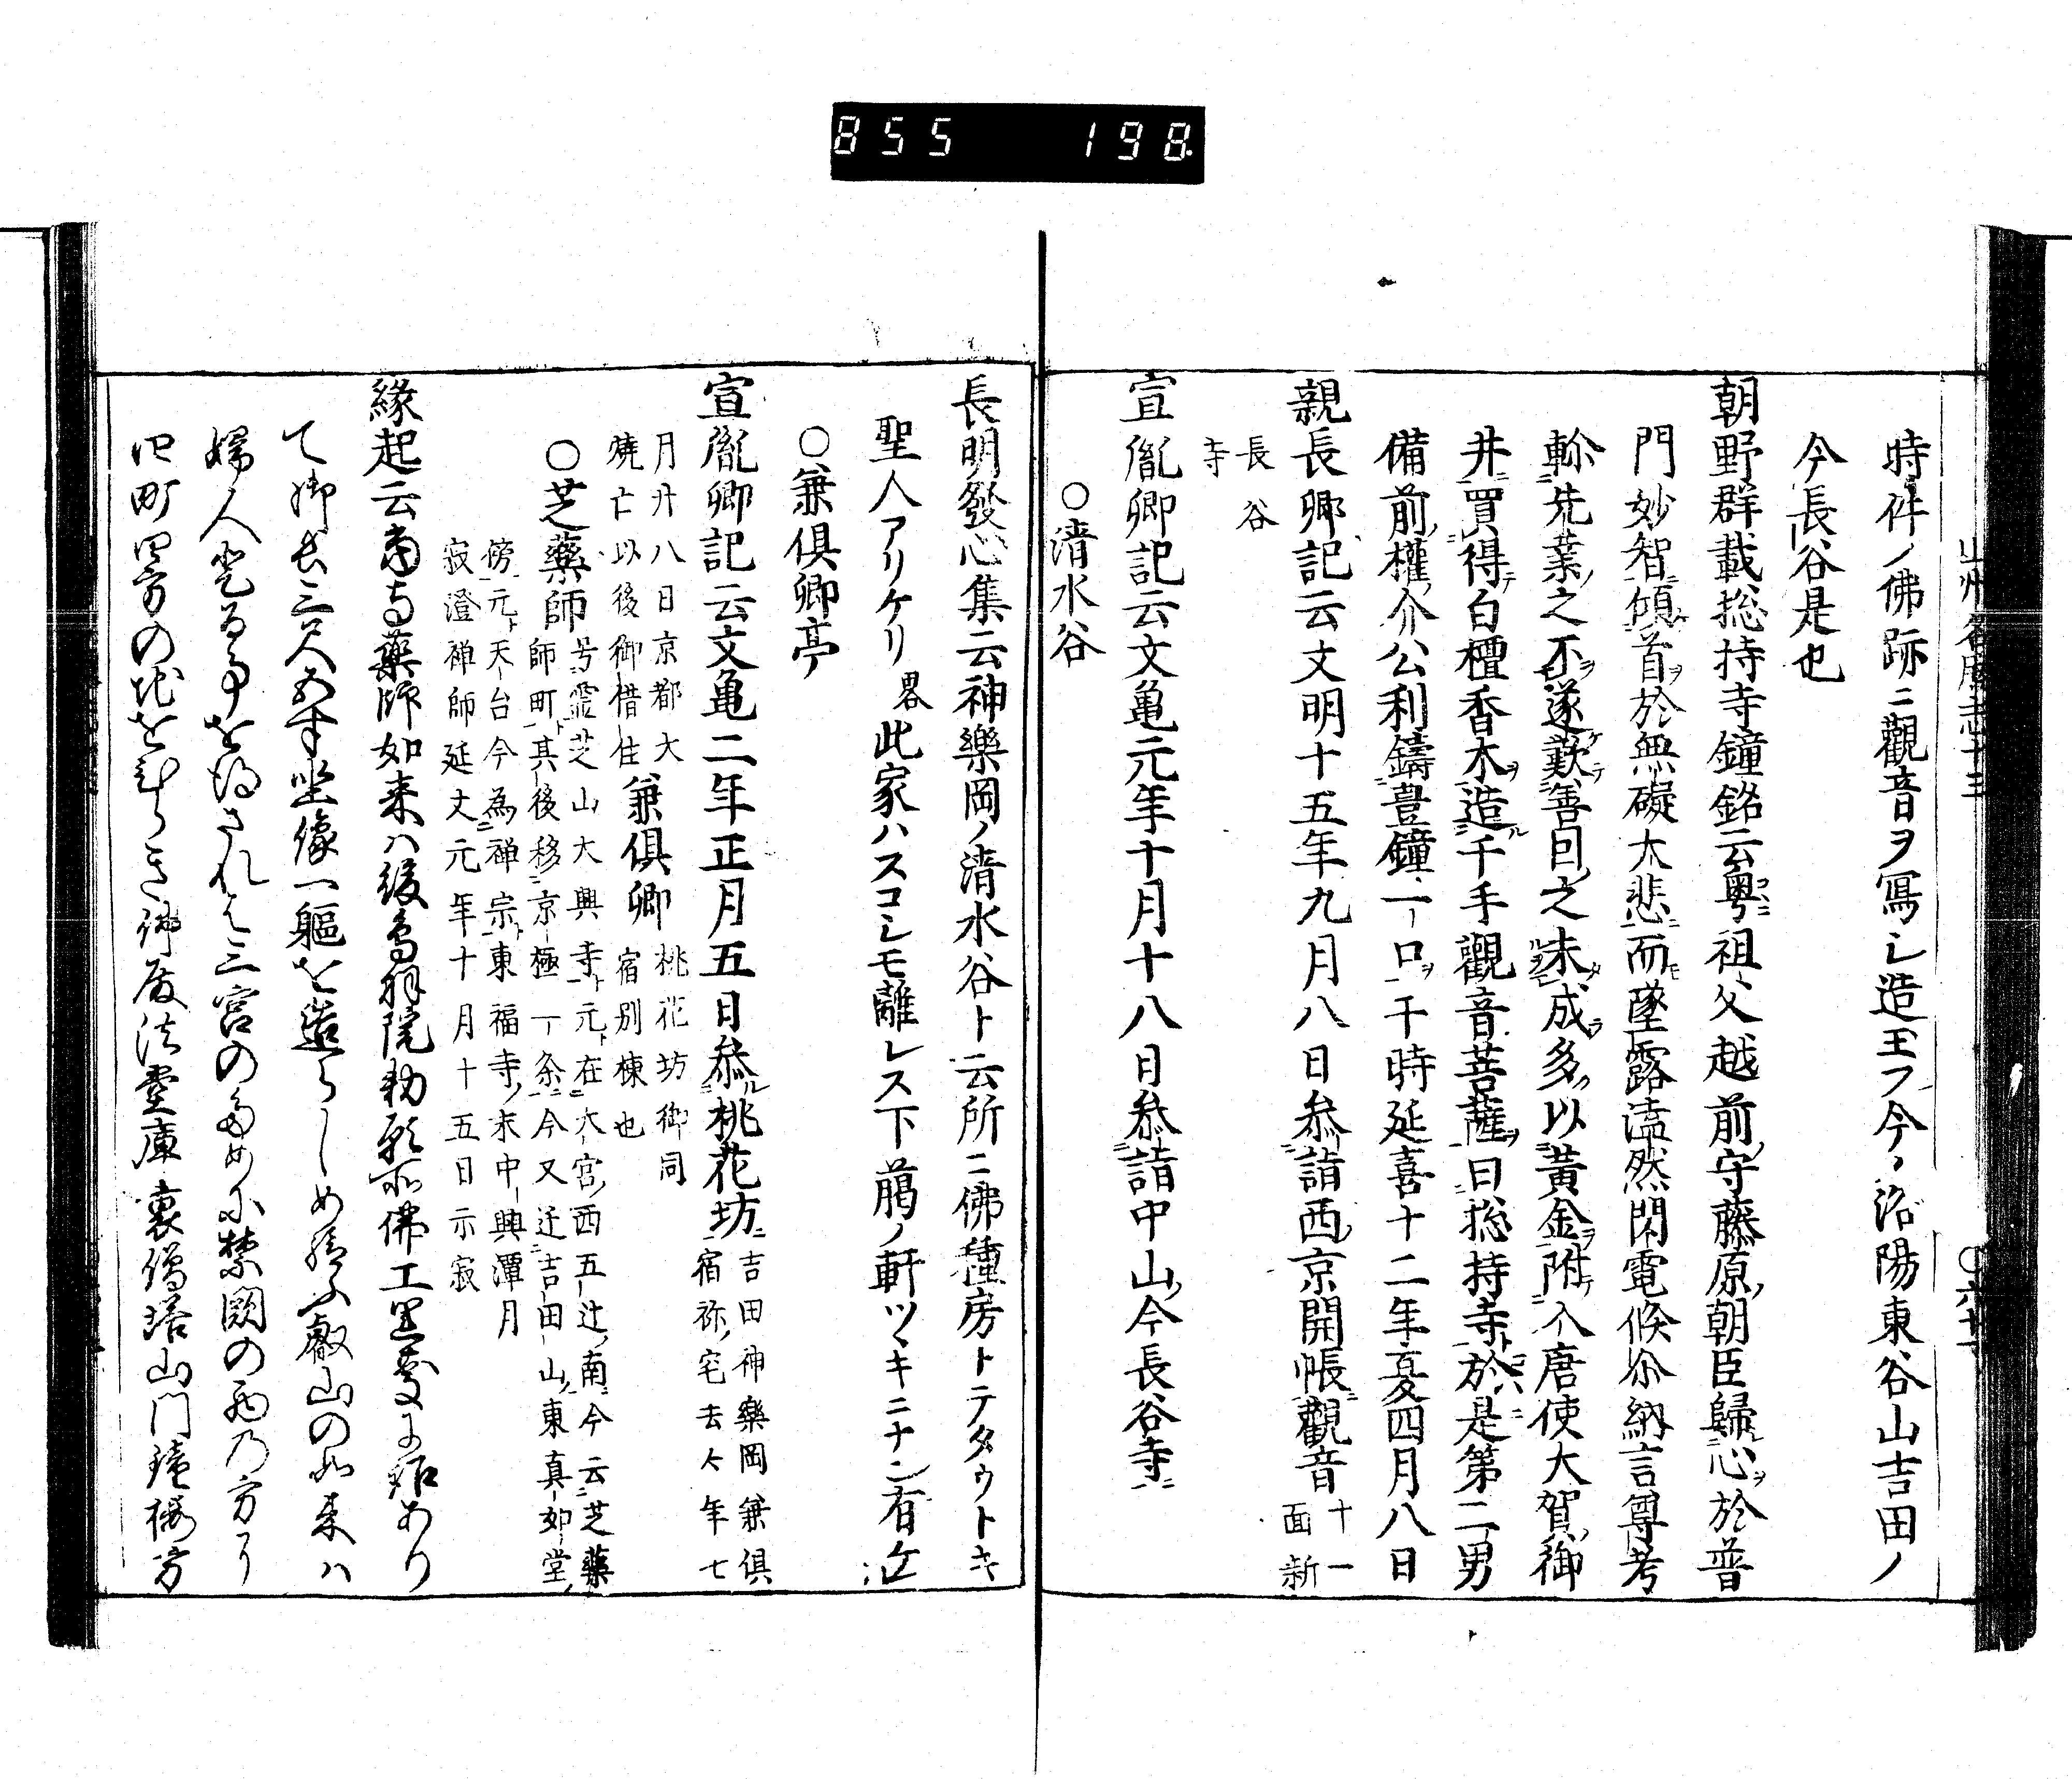 855 198
山州名跡志十三 〇六十一
時件ノ佛跡ニ觀音ヲ寫シ造玉フ今ノ洛陽東谷山吉田ノ
今長谷是也
朝野群載総持寺鐘銘云粤祖父越前守藤原朝臣歸心於普
門妙智傾首於無礙大悲而墜露溘然閃電倏忽納言尊考
軫先業之不遂歎善因之未成多以黃金附入唐使大賀御
井買得白檀香木造千手觀音菩薩曰捴持寺於是第二男
備前權介公利鑄豊鐘一口于時延喜十二年夏四月八日
親長卿記云文明十五年九月八日叅詣西京開帳觀音十一面新
長谷寺
宣胤卿記云文亀元年十月十八日叅詣中山今長谷寺
〇清水谷
長明發心集云神樂岡ノ清水谷ト云所ニ佛種房トテタウトキ
聖人アリケリ畧此家ハスコシモ離レス下﨟ノ軒ツヽキニナン有ケル
〇兼倶卿亭
宣胤卿記云文亀二年正月五日叅桃花坊吉田神樂岡兼倶宿祢宅去々年七
月廾八日京都大燒亡以後御借住兼倶卿桃花坊御同宿別棟也
〇芝藥師号霊芝山大興寺元在大宮西五辻南今云芝藥師町其後移京極一条今又迁吉田山東真如堂
傍元天台今為禅宗東福寺末中興潭月寂澄禅師延文元年十月十五日示寂
緣起云當寺藥師如来ハ後鳥羽院勅願而佛工運慶に詔あり
て御長三尺五寸坐像一軀を造らしめ給ふ叡山の如来ハ
婦人登る事を得されは三宮のために禁闕の西乃方に
四町四方の地をひらき佛殿法堂庫裏僧堂山門鐘楼方